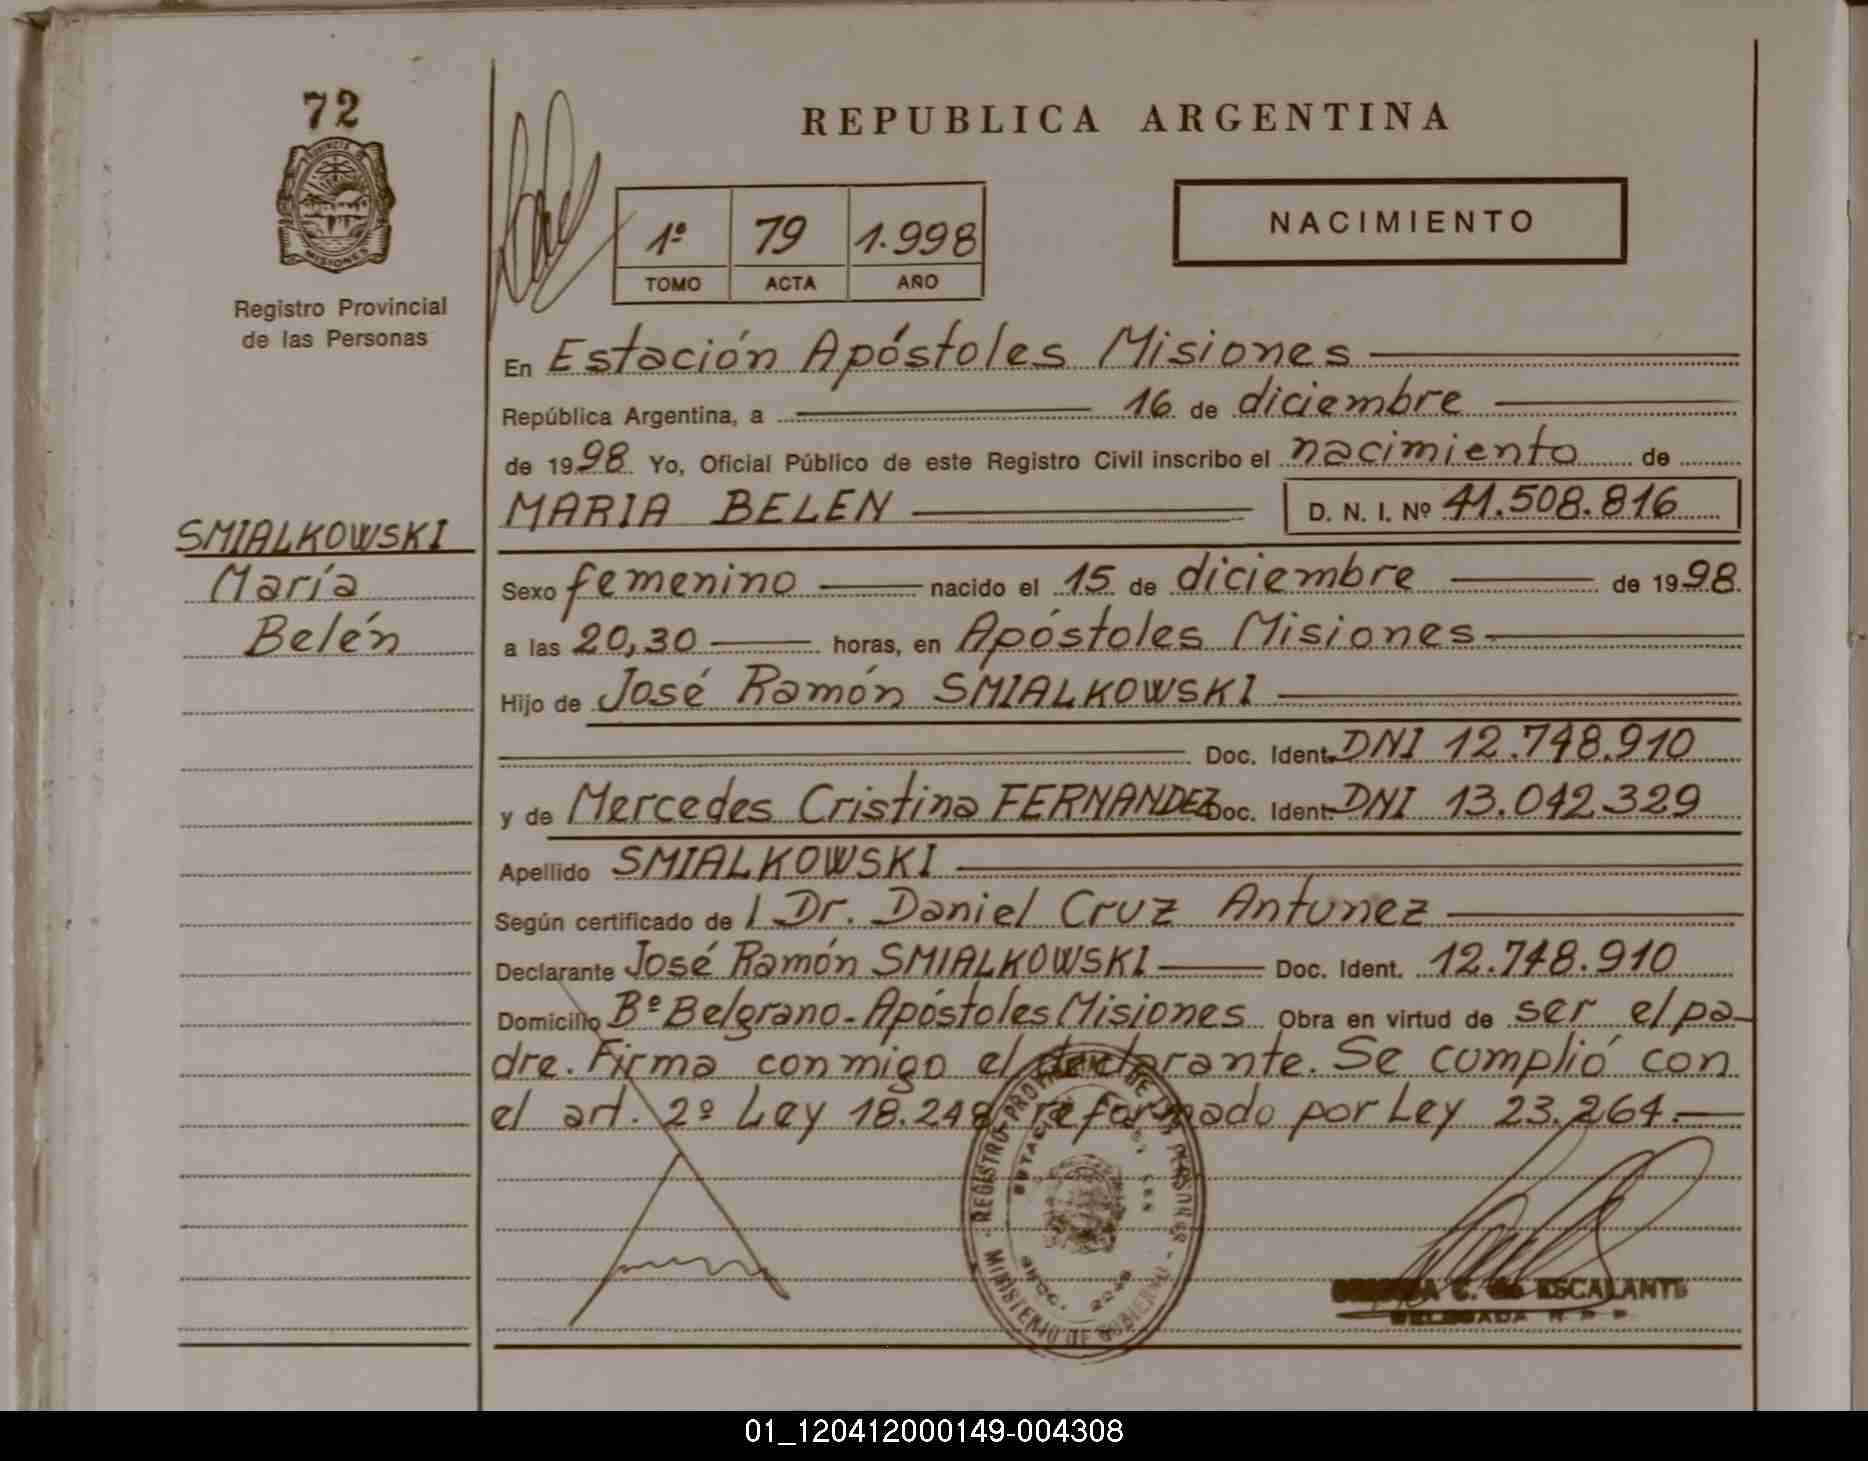 72
PROVINCIA DE
MISIONES
Registro Provincial
de las Personas
SMIALKOWSKI
María
Belén
REPUBLICA ARGENTINA
1º 79 1.998
TOMO ACTA AÑO
NACIMIENTO
En Estación Apóstoles Misiones
República Argentina, a 16 de diciembre
de 1998 Yo, Oficial Público de este Registro Civil inscribo el nacimiento de
MARIA BELEN D. N. I. Nº 41.508.816
Sexo femenino nacido el 15 de diciembre de 1998
a las 20,30 horas, en Apóstoles Misiones
Hijo de José Ramón SMIALKOWSKI
Doc. Ident. DNI 12.748.910
y de Mercedes Cristina FERNANDEZ Doc. Ident. DNI 13.042.329
Apellido SMIALKOWSKI
Según certificado de l Dr. Daniel Cruz Antunez
Declarante José Ramón SMIALKOWSKI Doc. Ident. 12.748.910
Domicilio Bº Belgrano - Apóstoles Misiones Obra en virtud de ser el pa-
dre. Firma conmigo el declarante. Se cumplió con
el art. 2º Ley 18.248 reformado por Ley 23.264.
REGISTRO PROVINCIAL DE LAS PERSONAS
MINISTERIO DE GOBIERNO
C. de ESCALANTE
DELEGADA R P P
01_120412000149-004308